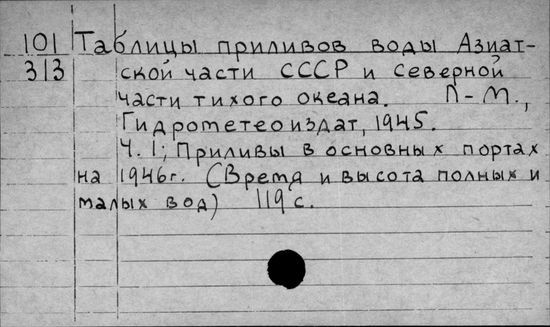 101 Таблицы приливов воды Азиат-
313 ской части СССР и Северной
части тихого океана. Л-М.,
Гидрометеоиздат, 1945.
Ч. 1; Приливы в основных портах
на 1946г. (Время и высота полных и
малых вод) 119 с.